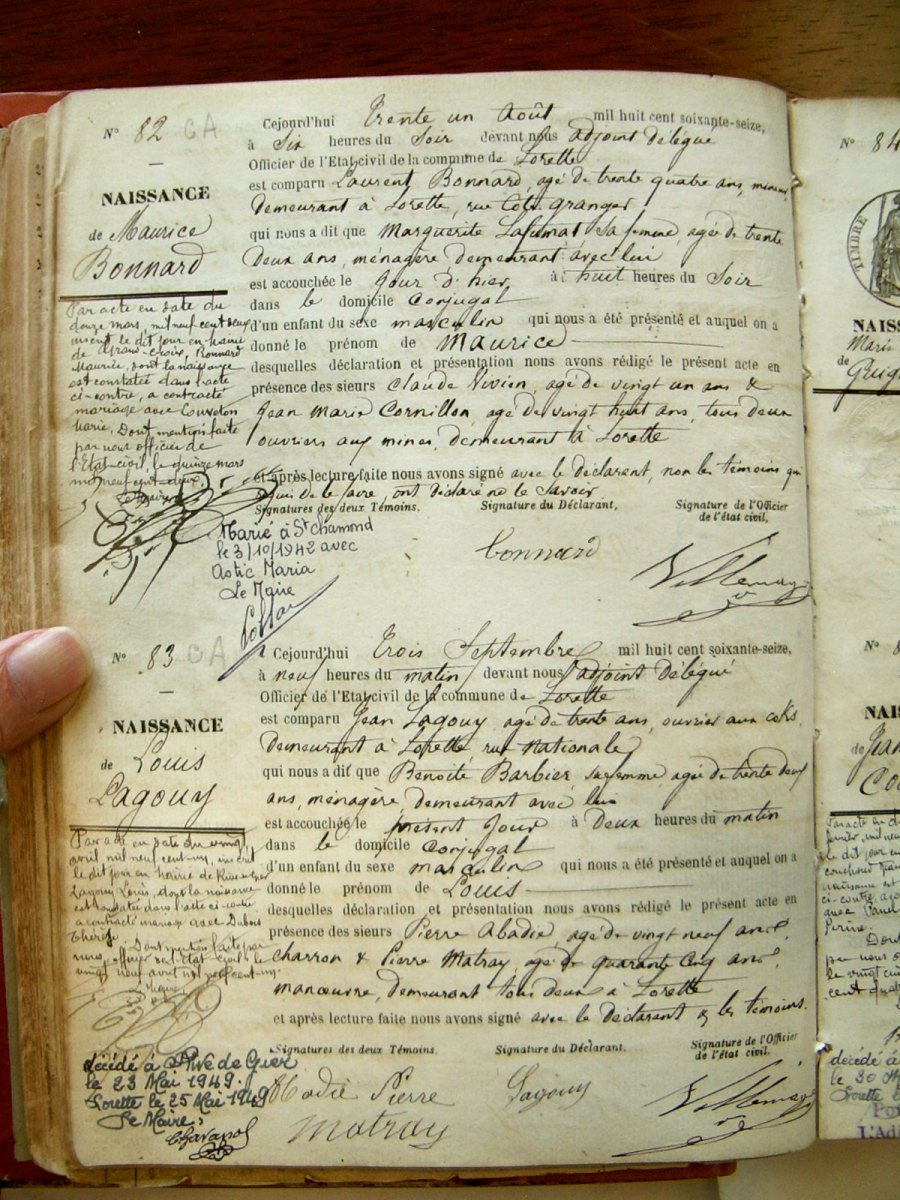 N° 82 CA
NAISSANCE
de Maurice
Bonnard
Par acte en date du
douze mars, mil neuf cent deux
inscrit le dit jour en mairie
de Croix, Bonnard
Maurice, dont la naissance
est constatée dans l'acte
ci-contre, a contracté
mariage avec
Marie, Dont mention faite
par nous officier de
l'Etat-civil, le quinze mars
mil neuf cent deux
Le Maire
Marié à St Chamond
le 3/10/1942 avec
Astic Maria
Le Maire
Cejourd'hui Trente un Août mil huit cent soixante-seize,
à Six heures du Soir devant nous adjoint délégué
Officier de l'Etat civil de la commune de Lorette
est comparu Laurent Bonnard, agé de trente quatre ans, mineur
demeurant à Lorette, rue Côte Granger
qui nous a dit que Marguerite Lafumat sa femme, agée de trente
deux ans, ménagère demeurant avec lui
est accouchée le jour d'hier, à huit heures du Soir
dans le domicile Conjugal
d'un enfant du sexe masculin qui nous a été présenté et auquel on a
donné le prénom de Maurice
desquelles déclaration et présentation nous avons rédigé le présent acte en
présence des sieurs Claude Vivien, agé de vingt un ans &
Jean Marie Cornillon, agé de vingt huit ans, tous deux
ouvriers aux mines, demeurant à Lorette
et après lecture faite nous avons signé avec le déclarant, non les témoins qui
de le faire, ont déclaré ne le Savoir
Signatures des deux Témoins. Signature du Déclarant, Signature de l'Officier
de l'état civil,
Bonnard
N° 83 CA
NAISSANCE
de Louis
Lagouy
Par acte en date du vingt
avril mil neuf cent-un, inscrit
le dit jour en mairie de Rive-de-gier
Lagouy Louis, dont la naissance
est constatée dans l'acte ci-contre
a contracté mariage avec Dubois
Thérèse
Dont mention faite par
nous, officier de l'Etat Civil le
vingt neuf avril mil neuf cent-un.
décédé à Rive de Gier
le 23 Mai 1949.
Lorette le 25 Mai 1949
Le Maire:
Cejourd'hui Trois Septembre mil huit cent soixante-seize,
à neuf heures du matin devant nous adjoint délégué
Officier de l'Etat civil de la commune de Lorette
est comparu Jean Lagouy agé de trente ans, ouvrier aux coks
demeurant à Lorette rue Nationale
qui nous a dit que Benoîte Barbier sa femme, agée de trente deux
ans, ménagère, demeurant avec lui
est accouchée le présent jour à deux heures du matin
dans le domicile Conjugal
d'un enfant du sexe masculin qui nous a été présenté et auquel on a
donné le prénom de Louis
desquelles déclaration et présentation nous avons rédigé le présent acte en
présence des sieurs Pierre Abadie, agé de vingt neuf ans,
charron & Pierre Matray, agé de quarante cinq ans,
manœuvre, demeurant tous deux à Lorette
et après lecture faite nous avons signé avec le déclarant & les témoins.
Signatures des deux Témoins. Signature du Déclarant. Signature de l'Officier
de l'état civil.
Pierre Lagouy
Matray
N° 84
TIMBRE
NAISS
Marie
de
N° 8
NAIS
de Jean
décédé à
le 30
Lorette le